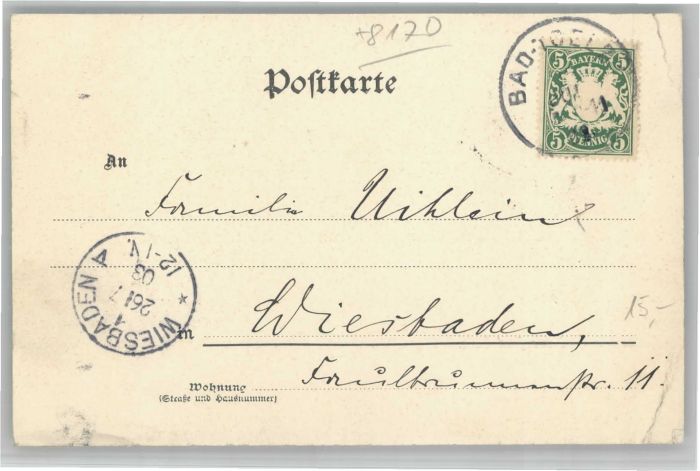 +8170
Poſtkarte
BAD-TOELZ
5 BAYERN 5
5 PFENNIG 5
An
Familie Uihlein
WIESBADEN 1
26 7
03
12-1N.
in Wiesbaden,
15,-
Wohnung
(Straße und Hausnummer)
Faulbrunnenstr. 11.